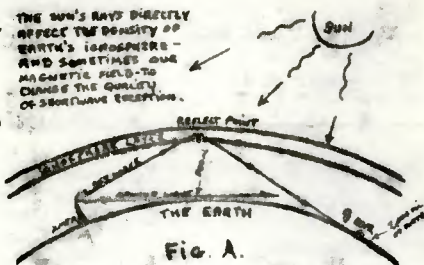 THE SUN'S RAYS DIRECTLY
AFFECT THE DENSITY OF
EARTH'S IONOSPHERE -
AND SOMETIMES OUR
MAGNETIC FIELD - TO
CHANGE THE QUALITY
OF SHORTWAVE RECEPTION.
SUN
REFLECT POINT
THE EARTH
Fig. A.